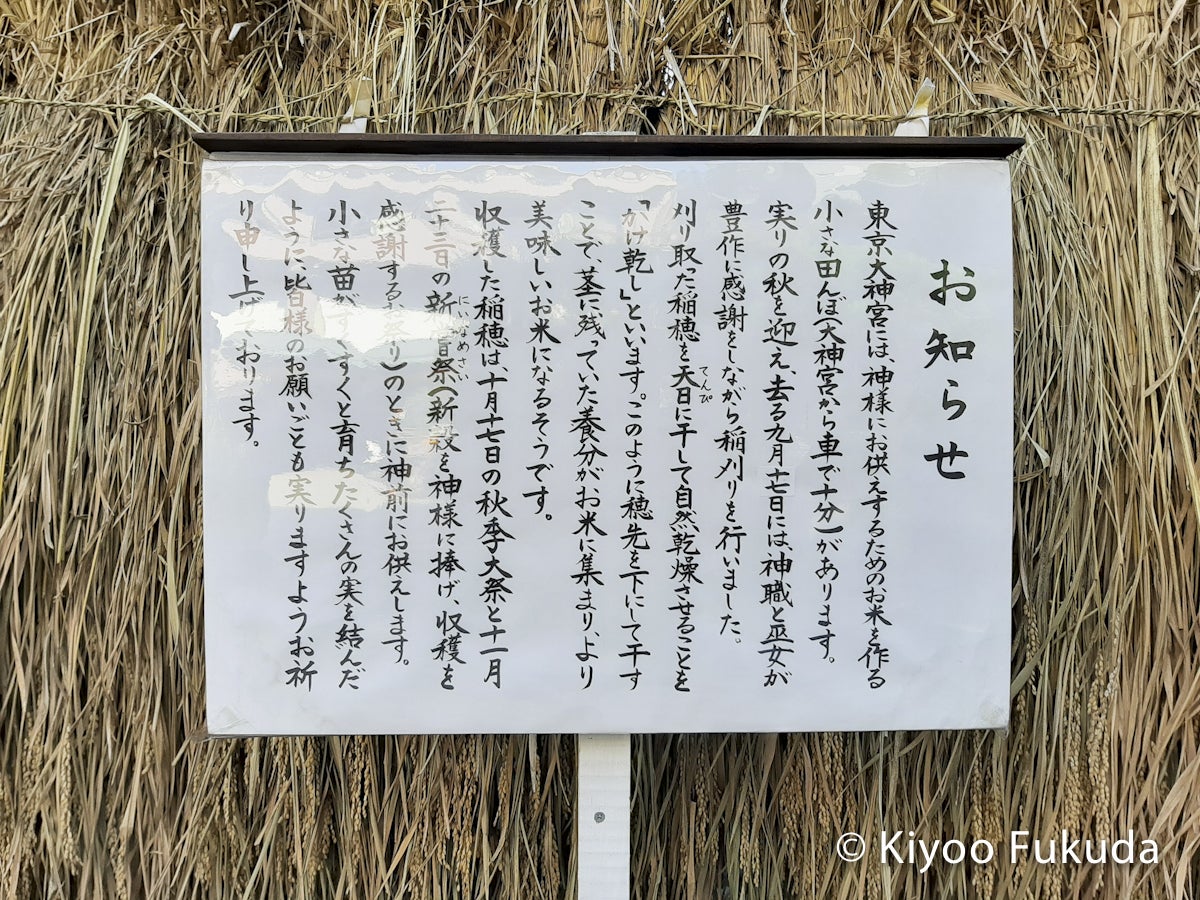 お知らせ
東京大神宮には、神様にお供えするためのお米を作る
小さな田んぼ(大神宮から車で十分)があります。
実りの秋を迎え、去る九月十七日には、神職と巫女が
豊作に感謝をしながら稲刈りを行いました。
刈り取った稲穂を天日に干して自然乾燥させることを
てんぴ
「かけ乾し」といいます。このように穂先を下にして干す
ことで、茎に残っていた養分がお米に集まり、より
美味しいお米になるそうです。
収穫した稲穂は、十月十七日の秋季大祭と十一月
二十三日の新嘗祭(新穀を神様に捧げ、収穫を
にいなめさい
感謝するお祭り)のときに神前にお供えします。
小さな苗がすくすくと育ちたくさんの実を結んだ
ように皆様のお願いごとも実りますようお祈
り申し上げております。
© Kiyoo Fukuda